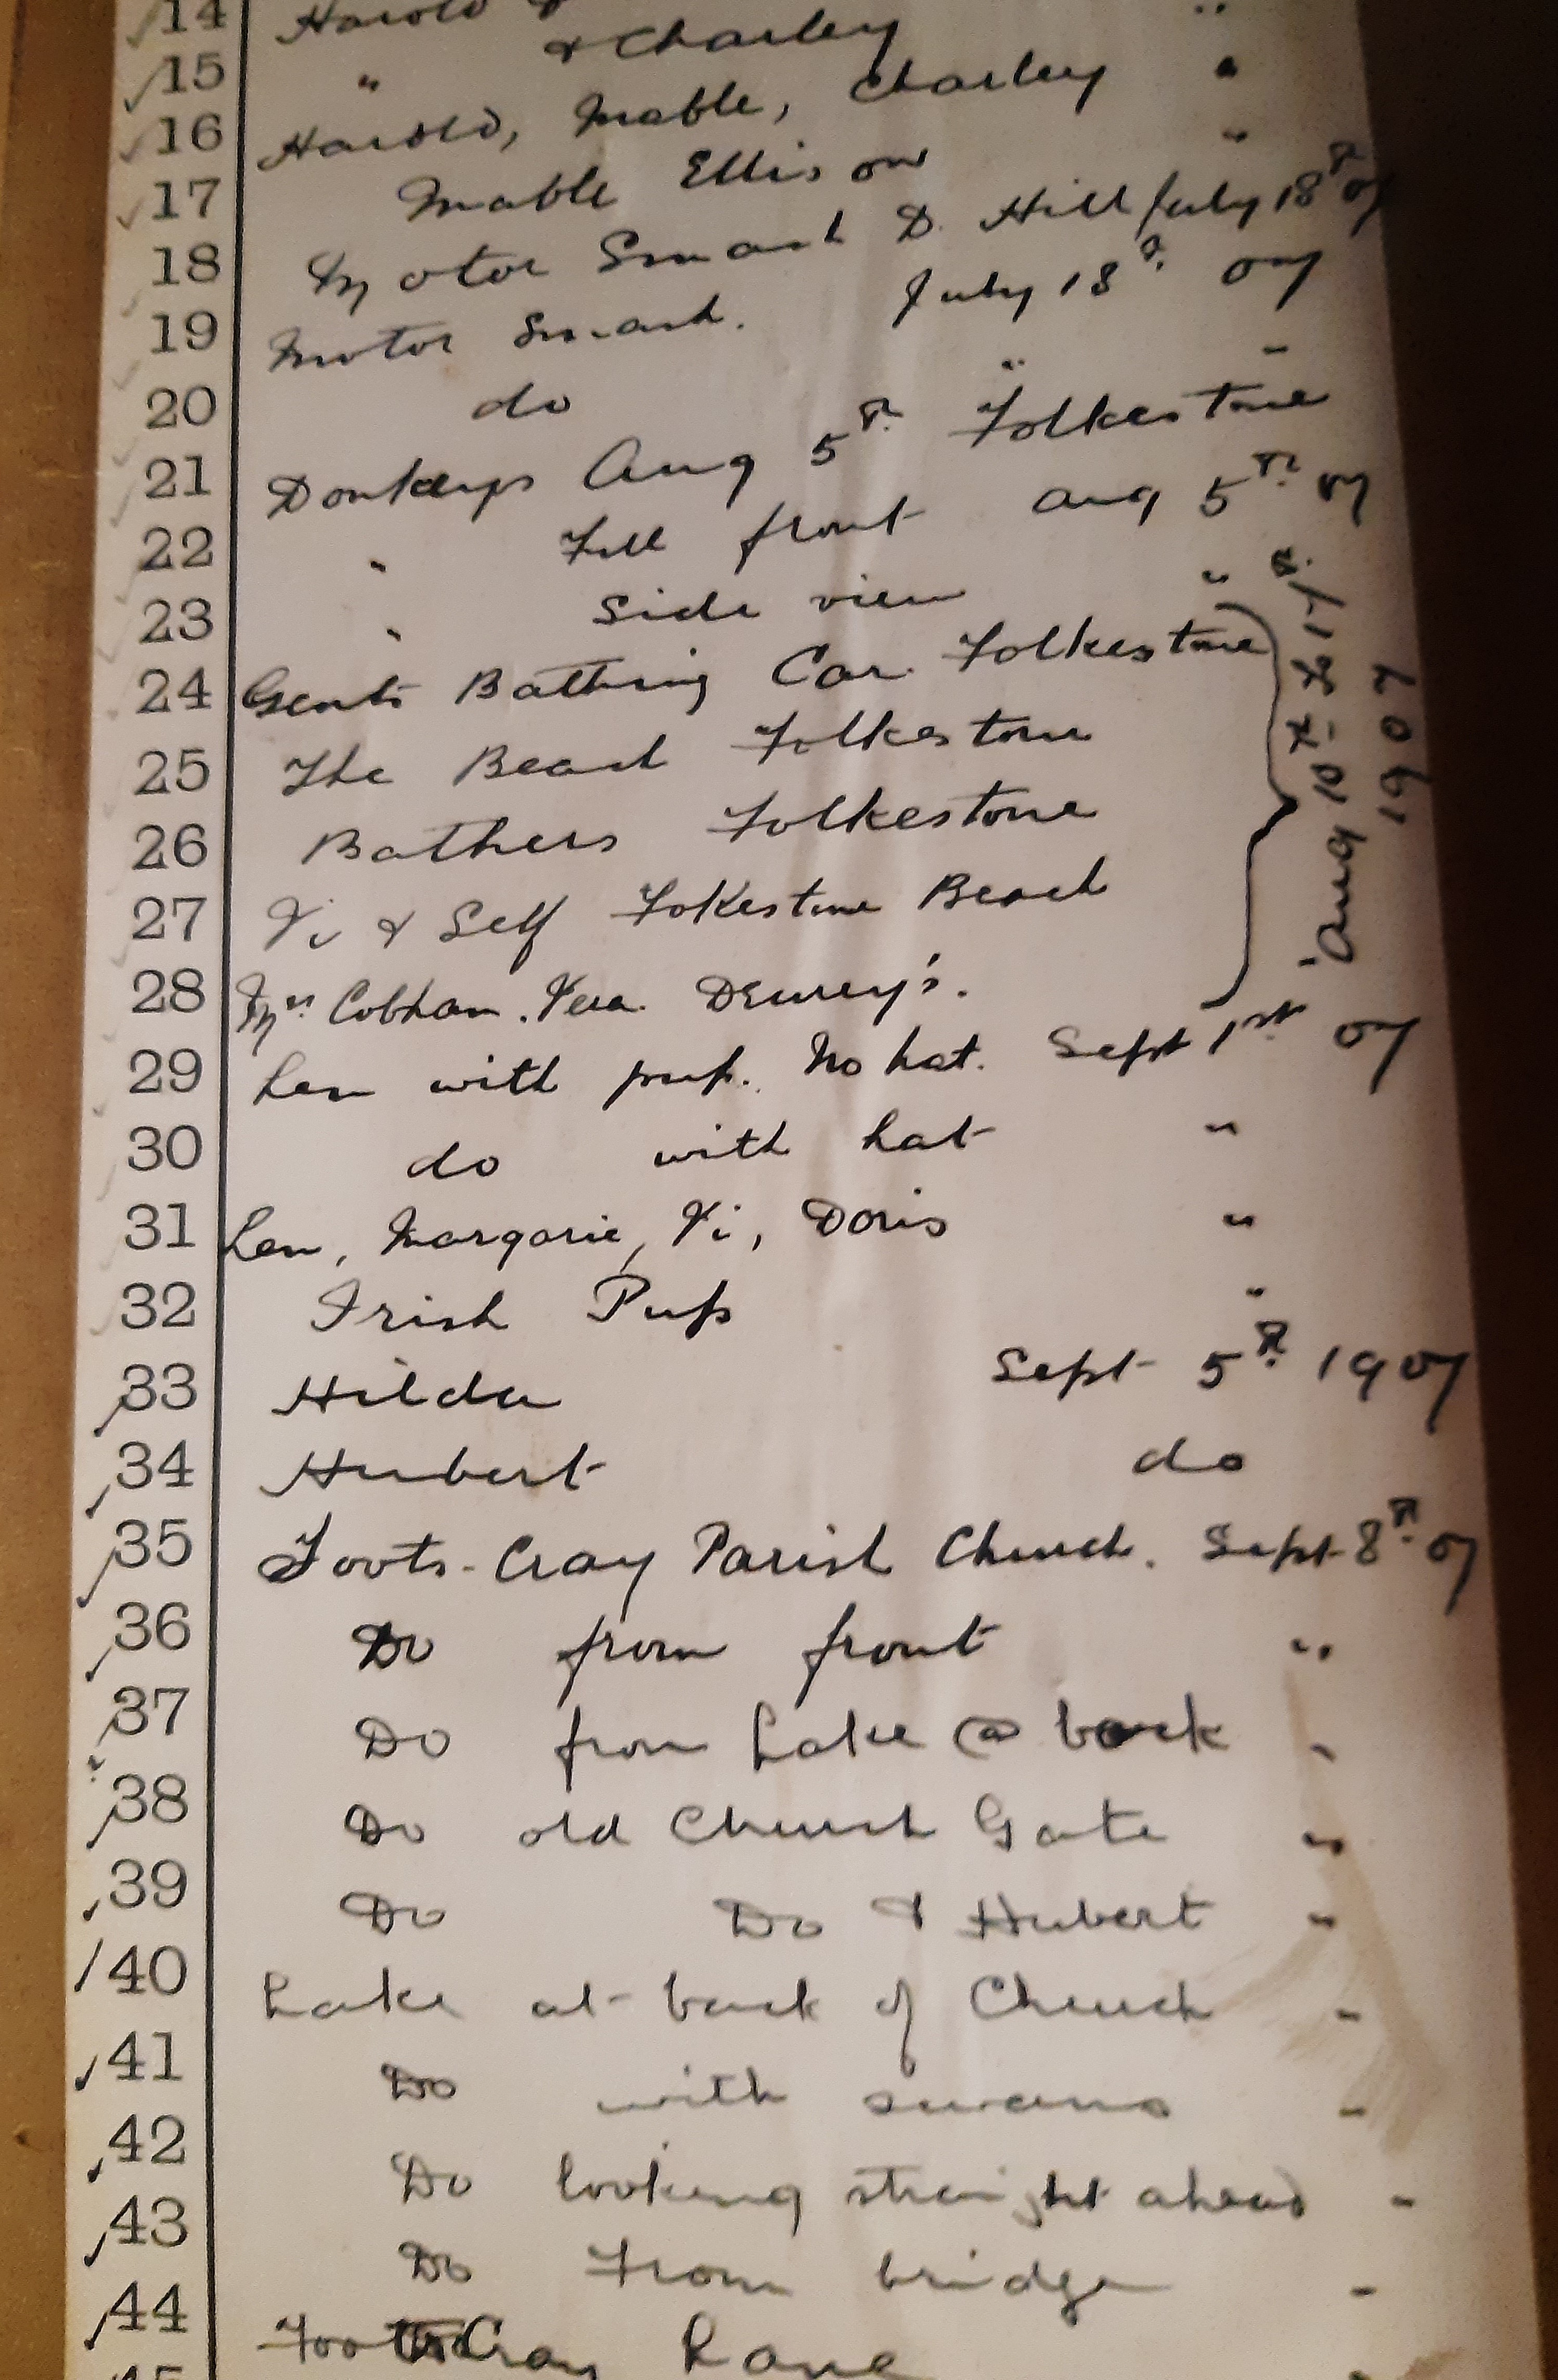 14 Harold & "
15 " & Charley "
16 Harold, Mable, Charley "
17 Mable Ellison
18 Motor Smash D. Hill July 18th 07
19 Motor Smash. July 18th 07
20 do " "
21 Donkeys Aug 5th Folkestone
22 " Full front Aug 5th 07
23 " Side view "
24 Gents Bathing Car Folkestone
25 The Beach Folkestone
26 Bathers Folkestone
27 Vi & Self Fokestone Beach
28 Mrs Cobham. Vera. Dewey's.
Aug 10th to 17th
1907
29 Len with pup. No hat. Sept 1st 07
30 do with hat "
31 Len, Margarie, Vi, Doris "
32 Irish Pup "
33 Hilda Sept 5th 1907
34 Hubert do
35 Foots-Cray Parish Church. Sept 8th 07
36 Do from front "
37 Do from Lake @ back "
38 Do old Church Gate "
39 Do Do & Hubert "
40 Lake at back of Church "
41 Do with swans "
42 Do looking straight ahead "
43 Do From bridge "
44 Foots Cray Lane "
45